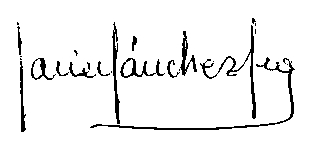 Javier Sánchez